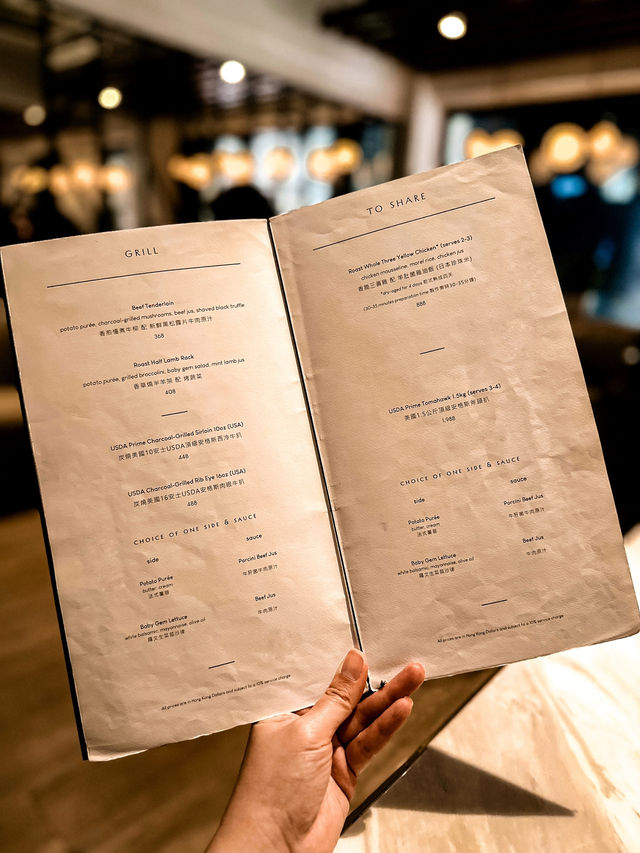 GRILL
Beef Tenderloin
potato purée, charcoal-grilled mushrooms, beef jus, shaved black truffle
香煎慢煮牛柳 配 新鮮黑松露片牛肉原汁
368
Roast Half Lamb Rack
potato purée, grilled broccolini, baby gem salad, mint lamb jus
香草燒半羊架 配 烤蔬菜
408
USDA Prime Charcoal-Grilled Sirloin 10oz (USA)
炭燒美國10安士USDA頂級安格斯西冷牛扒
448
USDA Charcoal-Grilled Rib Eye 16oz (USA)
炭燒美國16安士USDA安格斯肉眼牛扒
488
CHOICE OF ONE SIDE & SAUCE
side
Potato Purée
butter, cream
法式薯蓉
Baby Gem Lettuce
white balsamic, mayonnaise, olive oil
羅文生菜苗沙律
sauce
Porcini Beef Jus
牛肝菌牛肉原汁
Beef Jus
牛肉原汁
All prices are in Hong Kong Dollars and subject to a 10% service charge
TO SHARE
Roast Whole Three Yellow Chicken* (serves 2-3)
chicken mousseline, morel rice, chicken jus
香脆三黃雞 配 羊肚菌雞油飯 (日本珍珠米)
*dry-aged for 4 days 乾式熟成四天
(30-35 minutes preparation time 製作需時30-35分鐘)
888
USDA Prime Tomahawk 1.5kg (serves 3-4)
美國1.5公斤頂級安格斯斧頭扒
1,988
CHOICE OF ONE SIDE & SAUCE
side
Potato Purée
butter, cream
法式薯蓉
Baby Gem Lettuce
white balsamic, mayonnaise, olive oil
羅文生菜苗沙律
sauce
Porcini Beef Jus
牛肝菌牛肉原汁
Beef Jus
牛肉原汁
All prices are in Hong Kong Dollars and subject to a 10% service charge